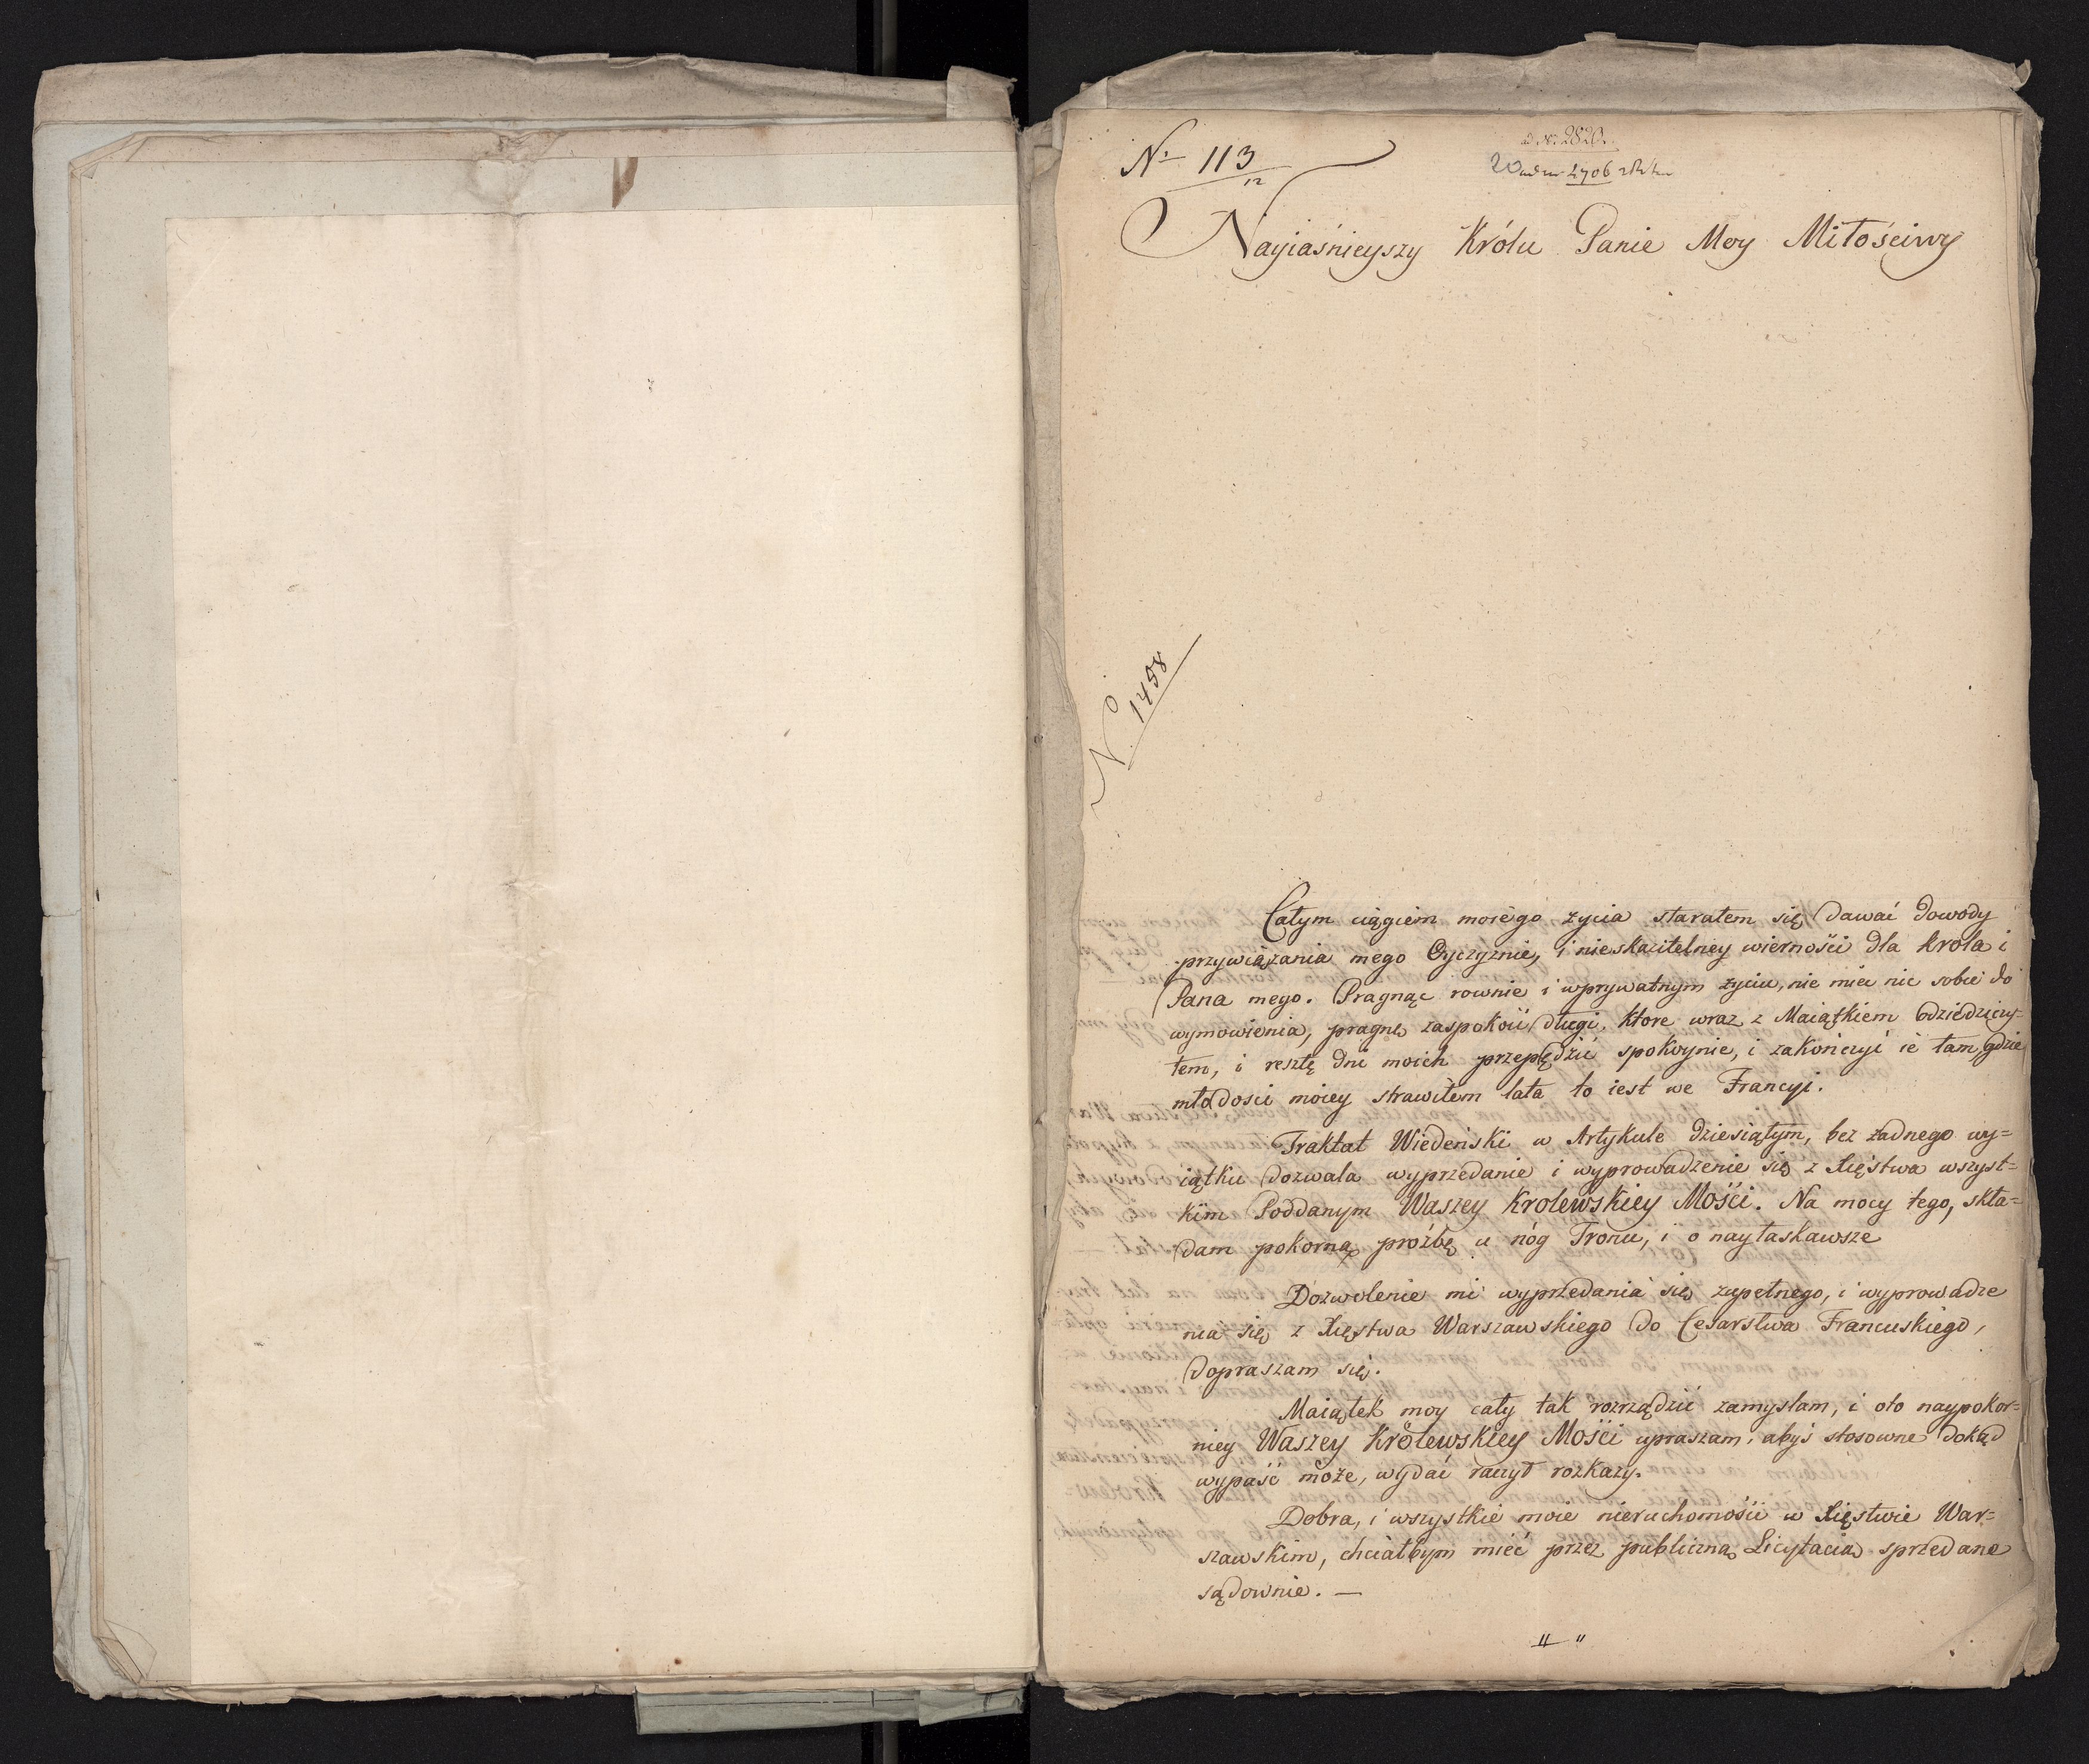 N. 113
12
ad No 2820.
2706
Nayiaśnieyszy Królu Panie Moy Miłościwy
N. 1458
Całym ciągiem moiego zycia starałem się dawać dowody
przywiązania mego Oyczyznie, i nieskazitelney wierności dla krola i
Pana mego. Pragnąc rownie i wprywatnym zyciu, nie mieć nic sobie do
wymowienia, pragnę zaspokoić długi, ktore wraz z Maiątkiem odziedziczy-
łem, i resztę dni moich przepędzić spokoynie, i zakończyć ie tam, gdzie
młodosci moiey strawiłem lata to iest we Francyi.
Traktat Wiedeński w Artykule dziesiątym, bez żadnego wy=
iątku dozwala wyprzedanie i wyprowadzenie się z Xięstwa wszyst=
kim Poddanym Waszey Krolewskiey Mości. Na mocy tego, skła=
dam pokorną prożbę u nóg Tronu, i o nayłaskawsze
Dozwolenie mi wyprzedania się zupełnego, i wyprowadze
nia się z Xięstwa Warszawskiego do Cesarstwa Francuskiego,
dopraszam się.
Maiątek moy cały tak rozrządzić zamyslam, i oto naypokor=
niey Waszey Królewskiey Mości upraszam, abyś stosowne dokąd
wypaść może, wydać raczył rozkazy.
Dobra, i wszystkie moie nieruchomości w Xięstwie War=
szawskim, chciałbym mieć przez publiczną Licytacią sprzedane
sądownie. —